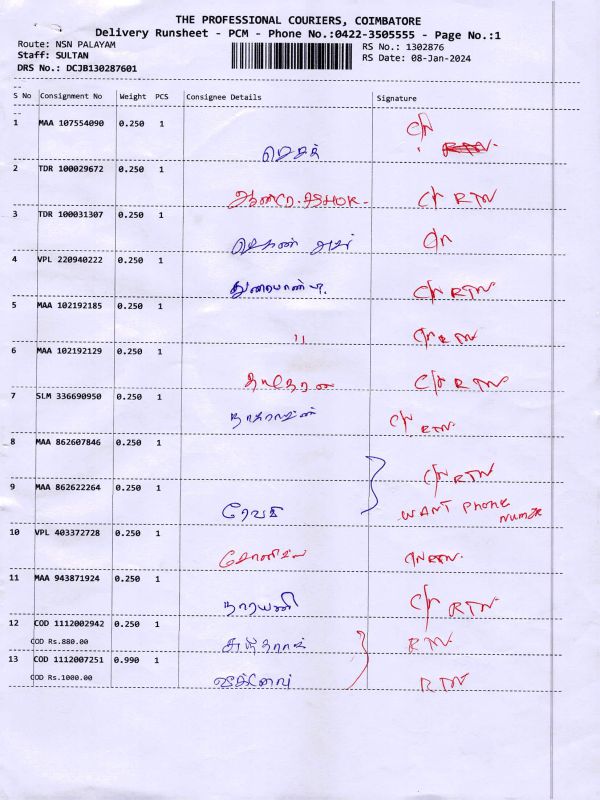 THE PROFESSIONAL COURIERS, COIMBATORE
Delivery Runsheet - PCM - Phone No.:0422-3505555 - Page No.:1
Route: NSN PALAYAM RS No.: 1302876
Staff: SULTAN RS Date: 08-Jan-2024
DRS No.: DCJB130287601
S No Consignment No Weight PCS Consignee Details Signature
1 MAA 107554090 0.250 1 C/N
RTN.
2 TDR 100029672 0.250 1
ASHOK - C/N RTN
3 TDR 100031307 0.250 1
C/N
4 VPL 220940222 0.250 1
துரைபாண்டி. C/N RTN
5 MAA 102192185 0.250 1
" C/N RTN
6 MAA 102192129 0.250 1
C/N RTN
7 SLM 336690950 0.250 1
C/N RTN.
8 MAA 862607846 0.250 1
C/N RTN
9 MAA 862622264 0.250 1
ரேவதி WANT PHONE
10 VPL 403372728 0.250 1
C/N RTN.
11 MAA 943871924 0.250 1
நாராயணி C/N RTN
12 COD 1112002942 0.250 1
COD Rs.880.00 RTN
13 COD 1112007251 0.990 1
COD Rs.1000.00 RTN